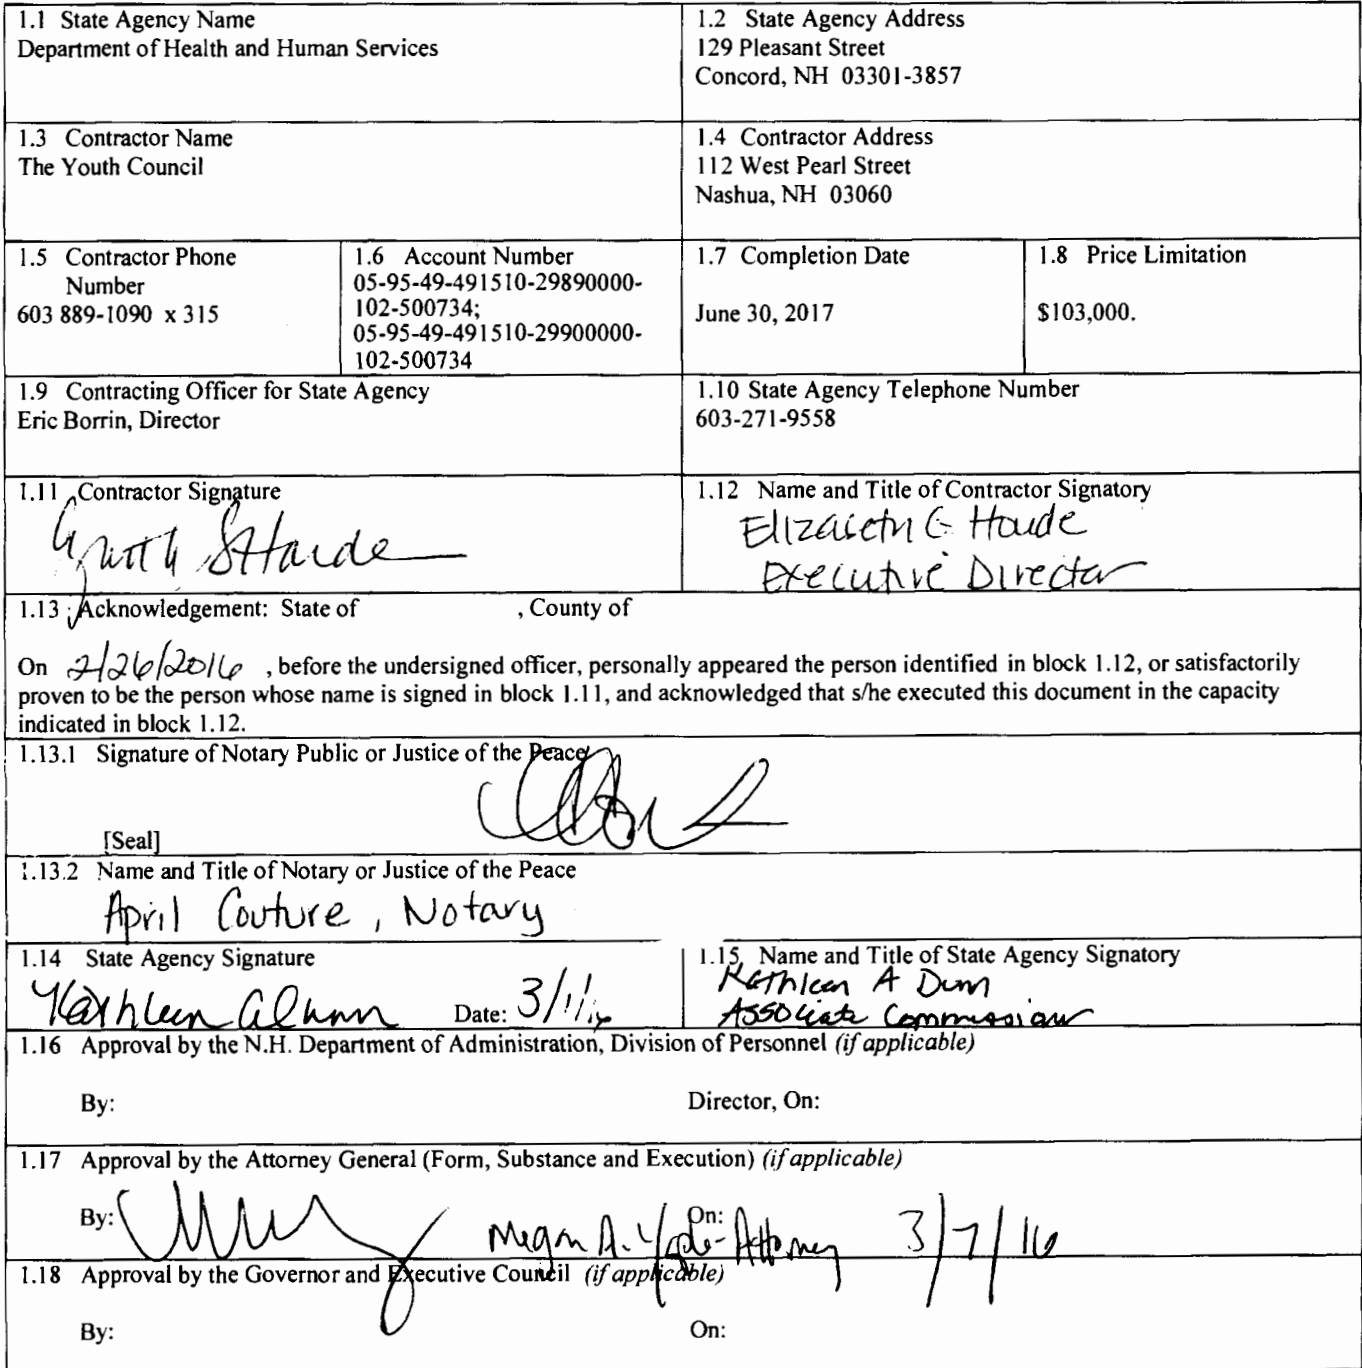 1.1 State Agency Name
Department of Health and Human Services
1.2 State Agency Address
129 Pleasant Street
Concord, NH 03301-3857
1.3 Contractor Name
The Youth Council
1.4 Contractor Address
112 West Pearl Street
Nashua, NH 03060
1.5 Contractor Phone
Number
603 889-1090 x 315
1.6 Account Number
05-95-49-491510-29890000-
102-500734;
05-95-49-491510-29900000-
102-500734
1.7 Completion Date
June 30, 2017
1.8 Price Limitation
$103,000.
1.9 Contracting Officer for State Agency
Eric Borrin, Director
1.10 State Agency Telephone Number
603-271-9558
1.11 Contractor Signature
1.12 Name and Title of Contractor Signatory
Elizabeth G Houde
Executive Director
1.13 Acknowledgement: State of , County of
On 2/26/2016 , before the undersigned officer, personally appeared the person identified in block 1.12, or satisfactorily
proven to be the person whose name is signed in block 1.11, and acknowledged that s/he executed this document in the capacity
indicated in block 1.12.
1.13.1 Signature of Notary Public or Justice of the Peace
[Seal]
1.13.2 Name and Title of Notary or Justice of the Peace
April Couture, Notary
1.14 State Agency Signature
Kathleen A Dunn Date: 3/1/16
1.15 Name and Title of State Agency Signatory
Kathleen A Dunn
Associate Commissioner
1.16 Approval by the N.H. Department of Administration, Division of Personnel (if applicable)
By: Director, On:
1.17 Approval by the Attorney General (Form, Substance and Execution) (if applicable)
By: On:
Megan A. Yaple - Attorney 3/7/16
1.18 Approval by the Governor and Executive Council (if applicable)
By: On: